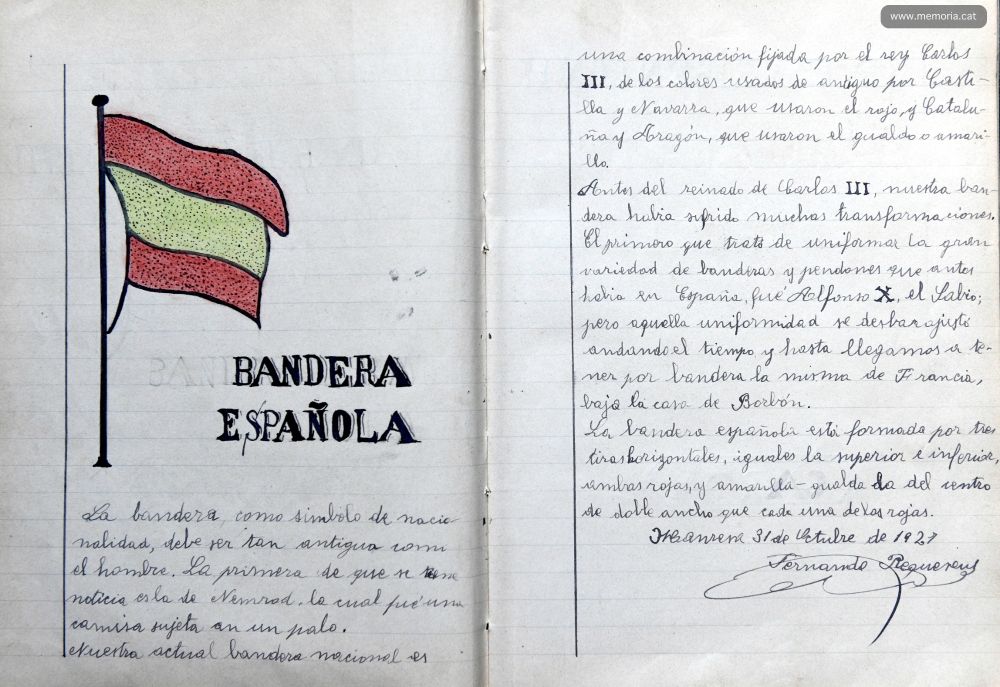 www.memoria.cat
BANDERA
ESPAÑOLA
La bandera, como simbolo de nacio-
nalidad, debe ser tan antigua como
el hombre. La primera de que se tiene
noticia es la de Nemrod, la cual fué una
camisa sujeta an un palo.
Nuestra actual bandera nacional es
una combinación fijada por el rey Carlos
III, de los colores usados de antiguo por Casti-
lla y Navarra, que usaron el rojo, y Catalu-
ña y Aragón, que usaron el gualdo o amari-
llo.
Antes del reinado de Carlos III, nuestra ban
dera habia sufrido muchas transformaciones.
El primero que trató de uniformar la gran
variedad de banderas y pendones que antes
habia en España, fué Alfonso X, el Sabio;
pero aquella uniformidad se desbarajustó
andando el tiempo y hasta llegamos a te-
ner por bandera la misma de Francia,
bajo la casa de Borbón.
La bandera española está formada por tres
tiras horizontales, iguales la superior e inferior,
ambas rojas, y amarilla-gualda la del centro
de doble ancho que cada una de las rojas.
Manresa 31 de Octubre de 1927
Fernando Requesens